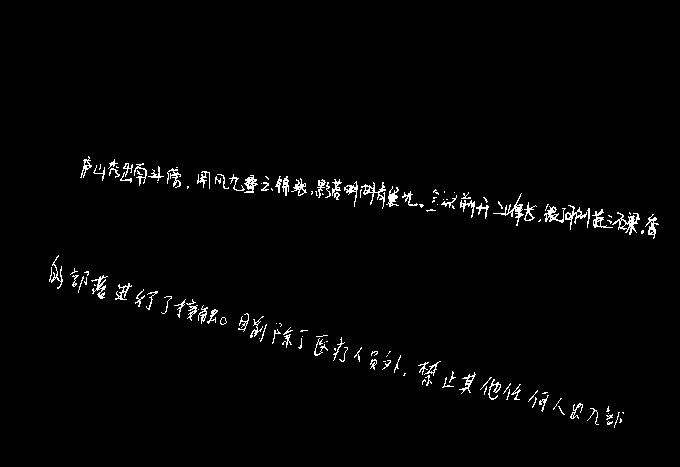 庐山秀出南斗傍，屏风九叠云锦张，影落明湖青黛光。金阙前开二峰长，银河倒挂三石梁。香
的部落进行了接触。目前除了医疗人员外，禁止其他任何人出入部